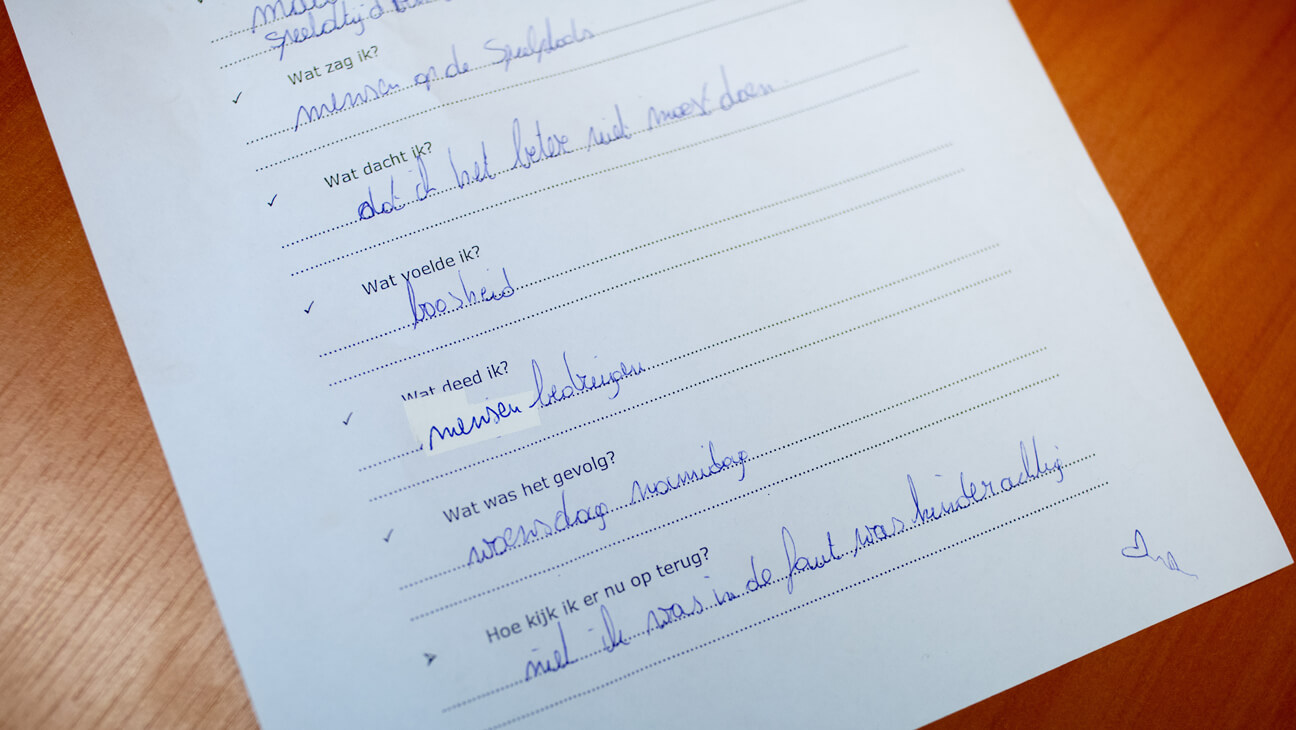 speeltijd
Wat zag ik?
mensen op de speelplaats
Wat dacht ik?
dat ik het beter niet moest doen
Wat voelde ik?
boosheid
Wat deed ik?
mensen bedreigen
Wat was het gevolg?
woensdag namidag
Hoe kijk ik er nu op terug?
niet ik was in de faut was kinderachtig